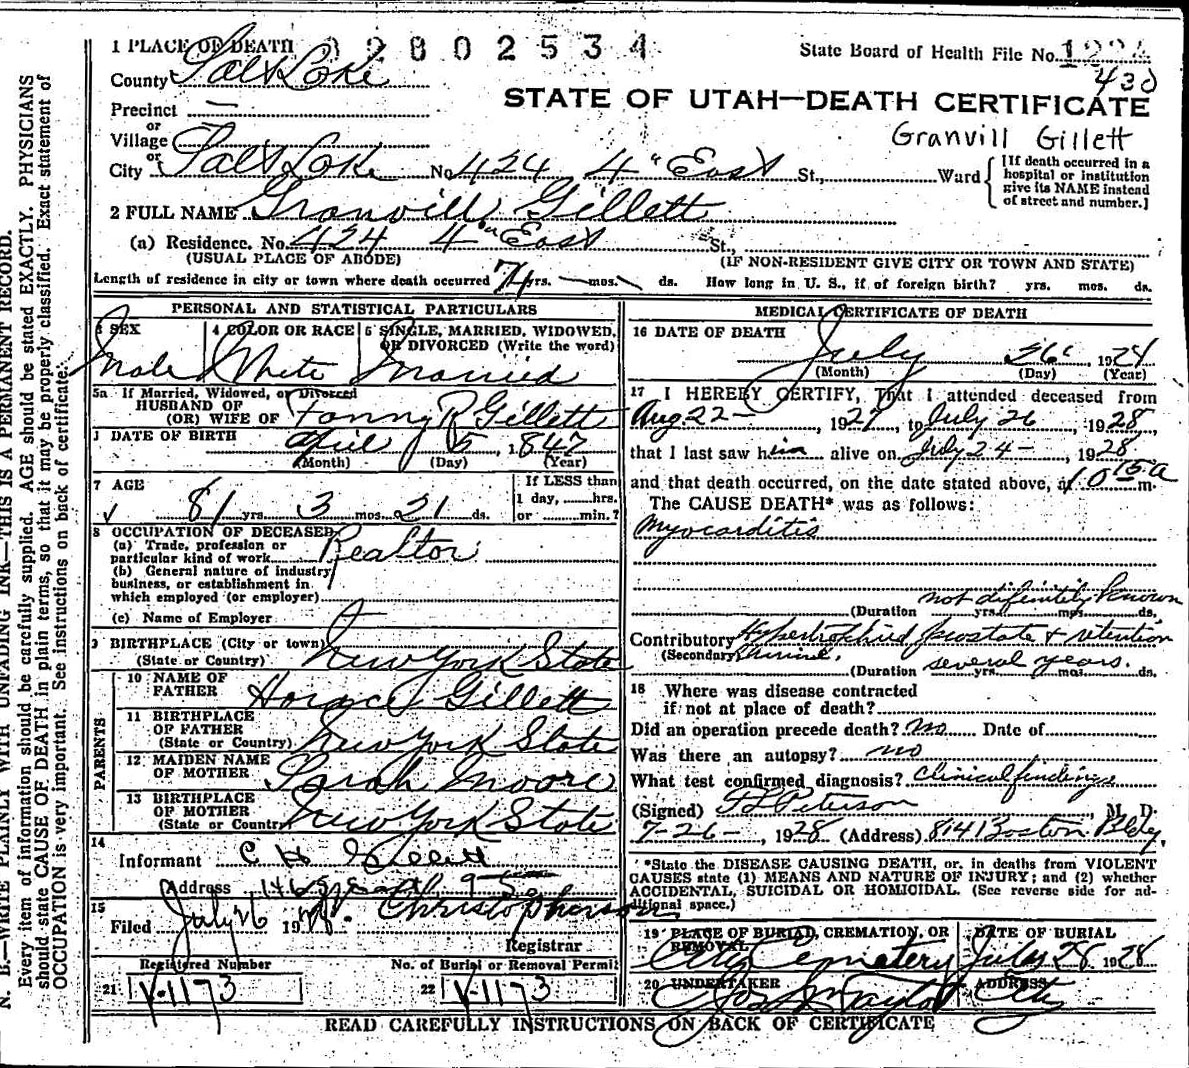 N. B.—WRITE PLAINLY WITH UNFADING INK—THIS IS A PERMANENT RECORD.
Every item of information should be carefully supplied. AGE should be stated EXACTLY. PHYSICIANS
should state CAUSE OF DEATH in plain terms, so that it may be properly classified. Exact statement of
OCCUPATION is very important. See instructions on back of certificate.
1 PLACE OF DEATH 2802534
State Board of Health File No. 122
430
County Salt Lake
STATE OF UTAH—DEATH CERTIFICATE
Precinct —
or
Village
Granvill Gillett
or
City Salt Lake No. 424 4" East St., Ward
[If death occurred in a
hospital or institution
give its NAME instead
of street and number.]
2 FULL NAME Granvill Gillett
(a) Residence. No. 424 4th East St.,
(USUAL PLACE OF ABODE) (IF NON-RESIDENT GIVE CITY OR TOWN AND STATE)
Length of residence in city or town where death occurred 74 yrs. — mos. ds. How long in U. S., if of foreign birth? yrs. mos. ds.
PERSONAL AND STATISTICAL PARTICULARS
3 SEX 4 COLOR OR RACE 5 SINGLE, MARRIED, WIDOWED,
OR DIVORCED (Write the word)
Male White Married
5a If Married, Widowed, or Divorced
HUSBAND OF
(OR) WIFE OF Fanny R Gillett
DATE OF BIRTH April 5, 1847
(Month) (Day) (Year)
7 AGE If LESS than
1 day, hrs.
81 yrs. 3 mos. 21 ds. or min.?
8 OCCUPATION OF DECEASED
(a) Trade, profession or
particular kind of work Realtor
(b) General nature of industry
business, or establishment in
which employed (or employer)
(c) Name of Employer
9 BIRTHPLACE (City or town)
(State or Country) New York State
PARENTS
10 NAME OF
FATHER Horace Gillett
11 BIRTHPLACE
OF FATHER
(State or Country) New York State
12 MAIDEN NAME
OF MOTHER Sarah Moore
13 BIRTHPLACE
OF MOTHER
(State or Country) New York State
14
Informant C H Gillett
Address
15
Filed July 26 1928. Christopherson
Registrar
Registered Number No. of Burial or Removal Permit
21 V-1173 22 V-1173
MEDICAL CERTIFICATE OF DEATH
16 DATE OF DEATH
July 26, 192
(Month) (Day) (Year)
17 I HEREBY CERTIFY, That I attended deceased from
Aug 22 —, 1927, to July 26, 1928,
that I last saw him alive on July 24 —, 1928
and that death occurred, on the date stated above, at 10 15 a m.
The CAUSE DEATH* was as follows:
Myocarditis
not difinitely known
(Duration yrs. mos. ds.
Contributory Hypertrophied prostate & retention
(Secondary) urine.
(Duration several years. yrs. mos. ds.
18 Where was disease contracted
if not at place of death?
Did an operation precede death? No Date of
Was there an autopsy? no
What test confirmed diagnosis? Clinical findings
(Signed) Peterson M. D.
7-26-, 1928 (Address) 814 Boston Bldg,
*State the DISEASE CAUSING DEATH, or, in deaths from VIOLENT
CAUSES state (1) MEANS AND NATURE OF INJURY; and (2) whether
ACCIDENTAL, SUICIDAL OR HOMICIDAL. (See reverse side for ad-
ditional space.)
19 PLACE OF BURIAL, CREMATION, OR
REMOVAL DATE OF BURIAL
City Cemetery July 28 1928
20 UNDERTAKER ADDRESS
Jos Taylor City
READ CAREFULLY INSTRUCTIONS ON BACK OF CERTIFICATE